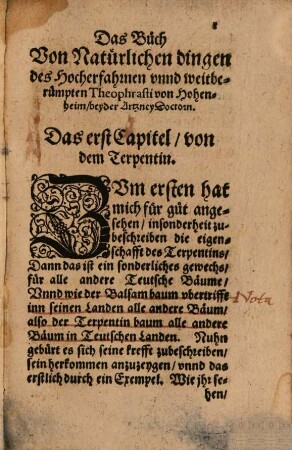 Das Bůch
Von Natürlichen dingen
des Hocherfahrnen vnnd weitbe-
rümpten Theophrasti von Hohen-
heim/beyder Artzney Doctorn.
Das erst Capitel/von
dem Terpentin.
ZVm ersten hat
mich für gůt ange-
sehen/insonderheit zu-
beschreiben die eigen-
schafft des Terpentins/
Dann das ist ein sonderliches gewechs/
für alle andere Teutsche Bäume/
Vnnd wie der Balsam baum vbertrifft Nota
inn seinen Landen alle andere Bäum/
also der Terpentin baum alle andere
Bäum in Teutschen Landen. Nuhn
gebürt es sich seine krefft zubeschreiben/
sein herkommen anzuzeygen/vnnd das
erstlich durch ein Exempel. Wie jhr se-
hen/